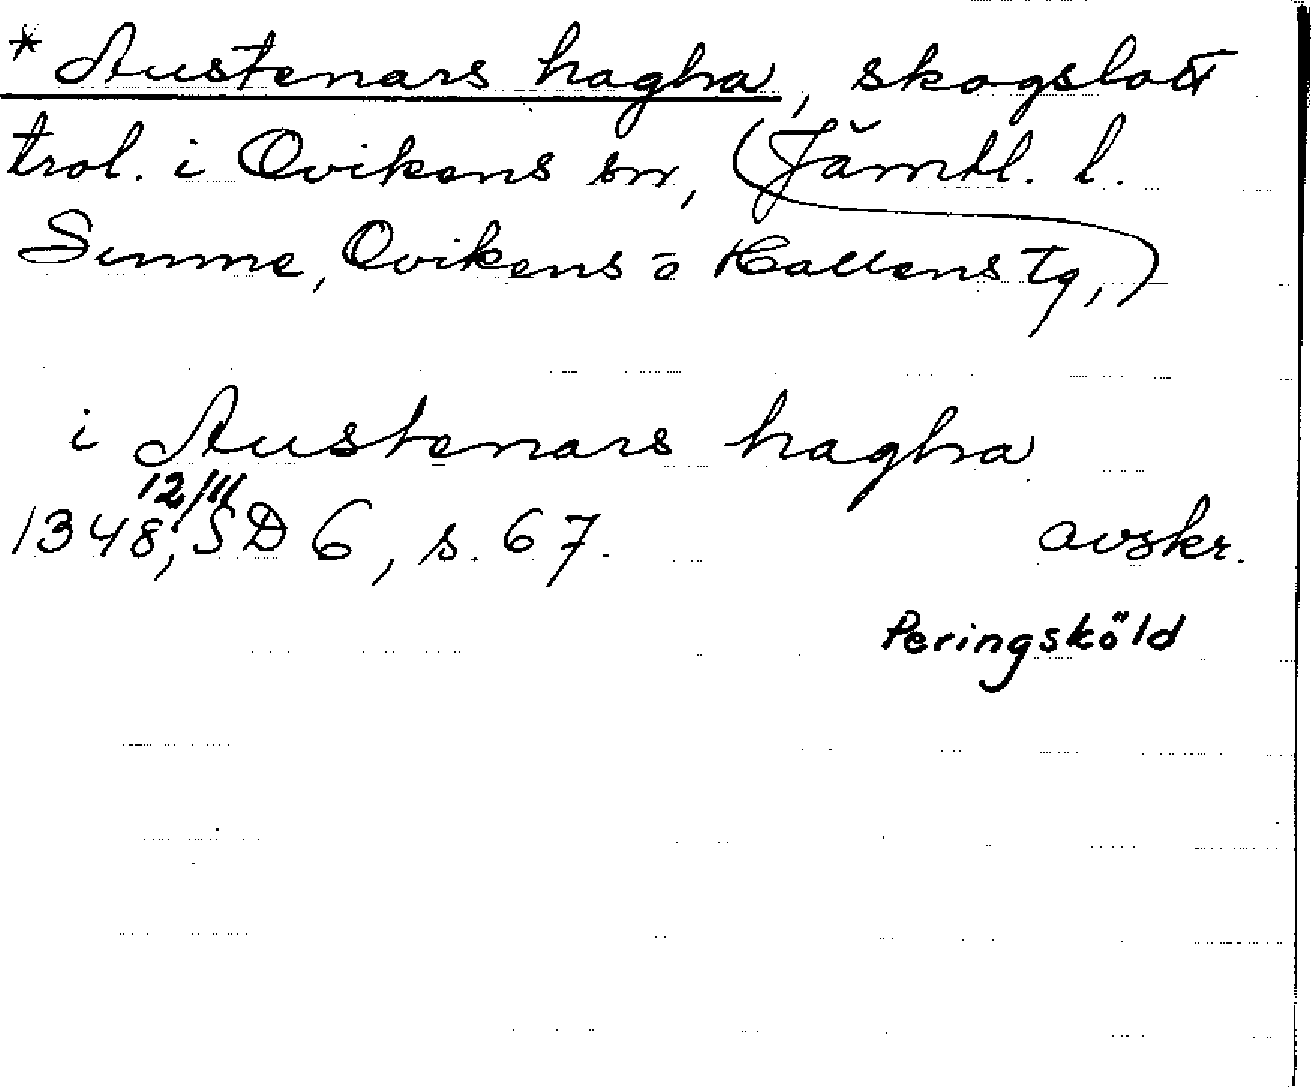 * Austenars haghra, skogslott
trol. i Ovikens sn, (Jämtl. l.
Sunne, Ovikens o Hallens tg,)
i Austenars haghra
12/11
1348, SD 6, s. 67. avskr.
Peringsköld